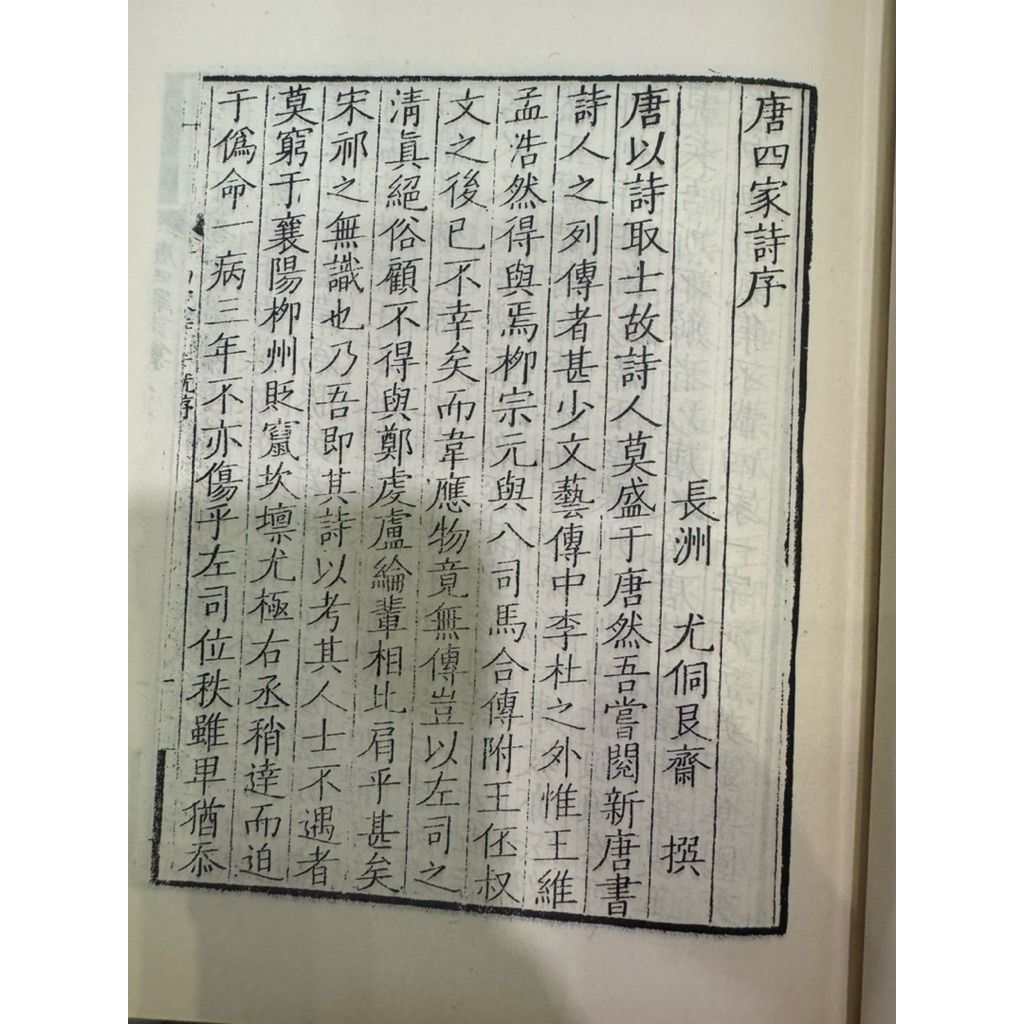 唐四家詩序
長洲 尤侗艮齋 撰
唐以詩取士故詩人莫盛于唐然吾嘗閱新唐書
詩人之列傳者甚少文藝傳中李杜之外惟王維
孟浩然得與焉栁宗元與八司馬合傳附王伾叔
文之後已不幸矣而韋應物竟無傳豈以左司之
淸眞絕俗顧不得與鄭虔盧綸輩相比肩乎甚矣
宋祁之無識也乃吾即其詩以考其人士不遇者
莫窮于襄陽栁州貶竄坎壈尤極右丞稍達而迫
于僞命一病三年不亦傷乎左司位秩雖卑猶忝